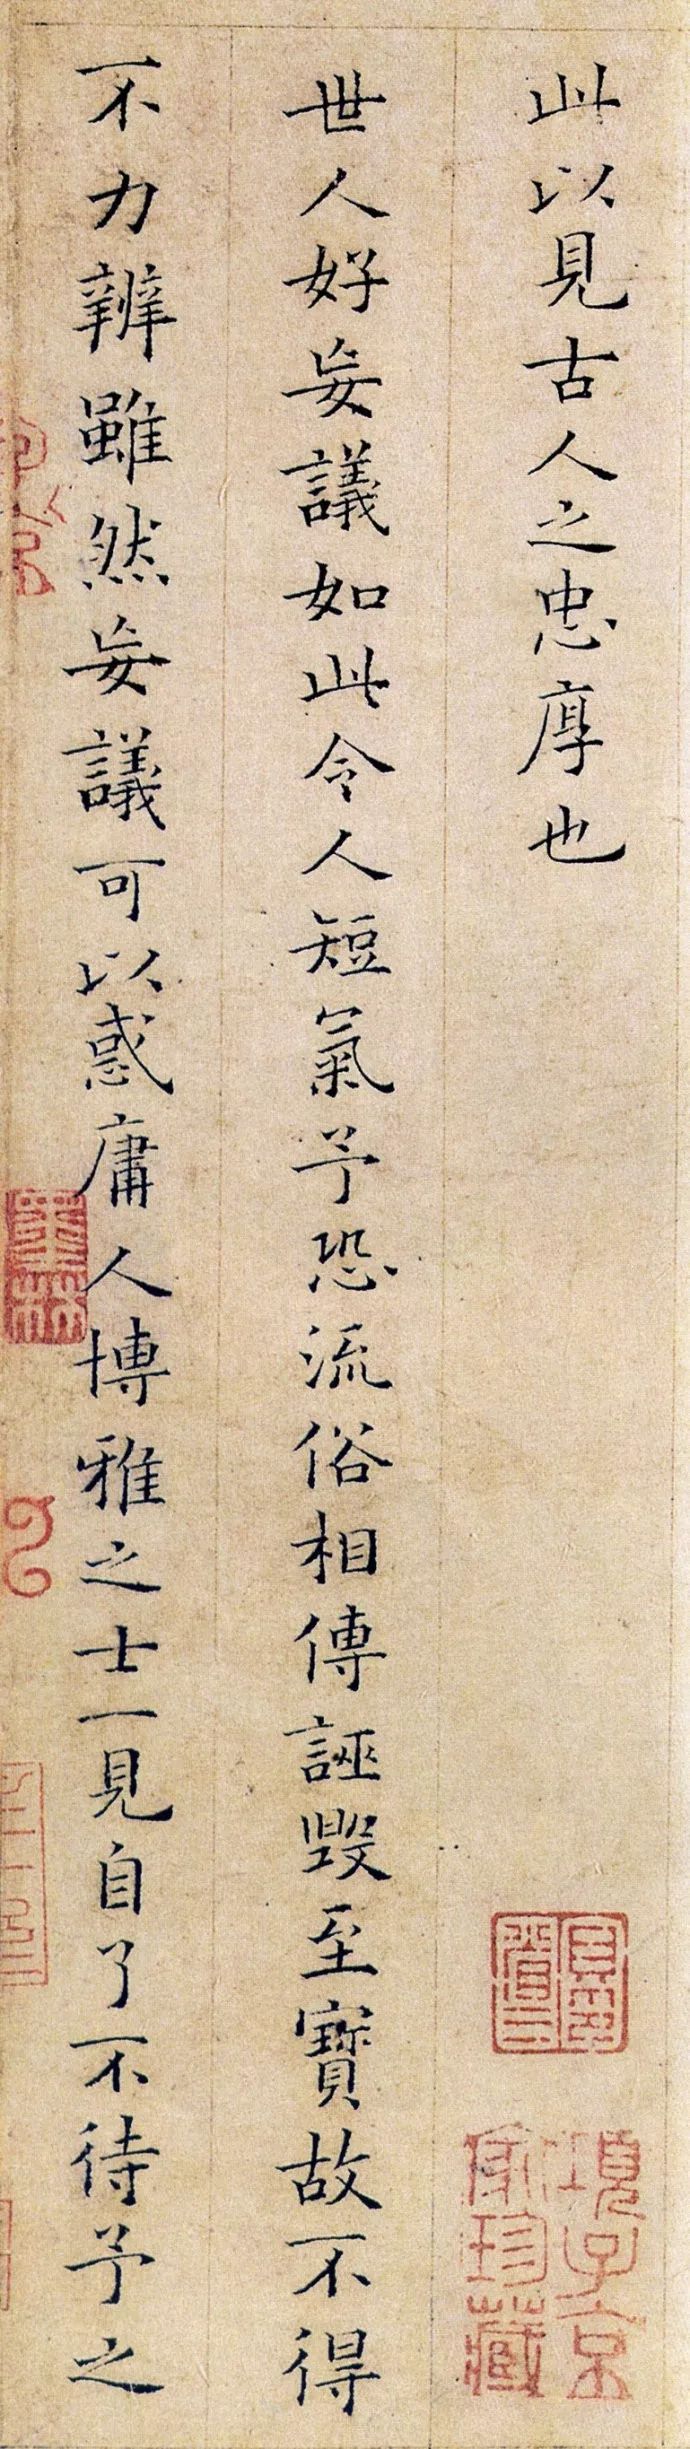 此以見古人之忠厚也
世人好妄議如此令人短氣予恐流俗相傳誣毀至寶故不得
不力辨雖然妄議可以惑庸人博雅之士一見自了不待予之
項子京
家珍藏